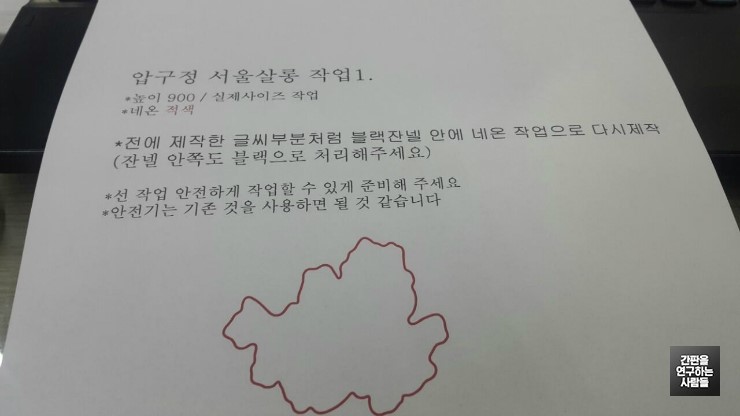 압구정 서울살롱 작업1.
*높이 900 / 실제사이즈 작업
*네온 적색
*전에 제작한 글씨부분처럼 블랙잔넬 안에 네온 작업으로 다시제작
(잔넬 안쪽도 블랙으로 처리해주세요)
*선 작업 안전하게 작업할 수 있게 준비해 주세요
*안전기는 기존 것을 사용하면 될 것 같습니다
간판을
연구하는
사람들